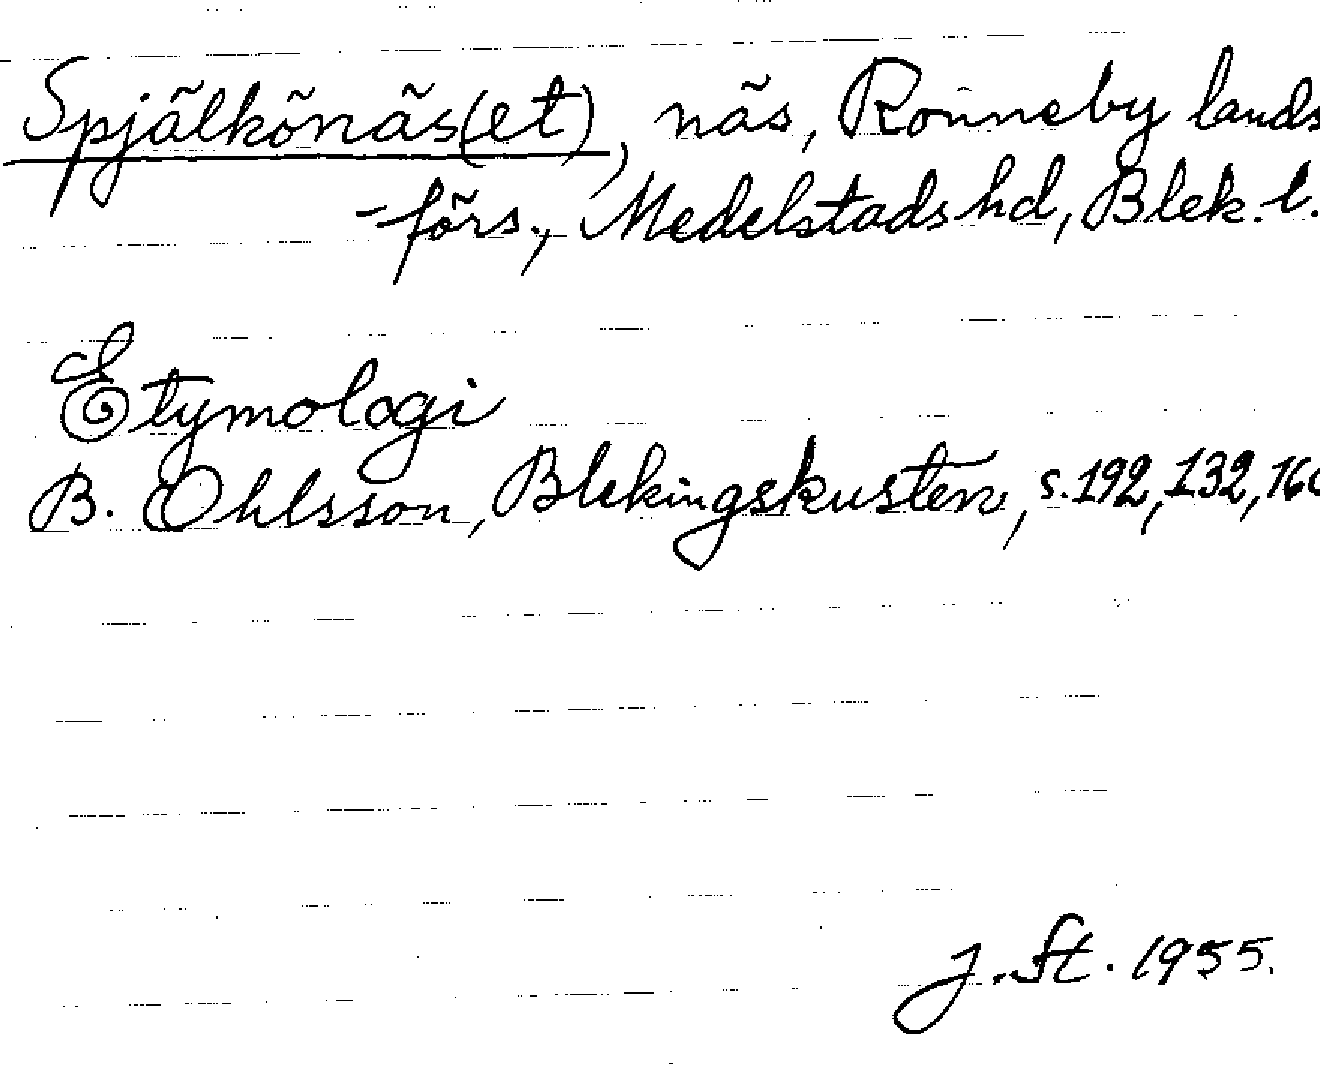 Spjälkönäs(et), näs, Ronneby lands
-förs., Medelstads hd, Blek. l.
Etymologi
B. Ohlsson, Blekingskusten, s. 192, 132,
J. St. 1955.